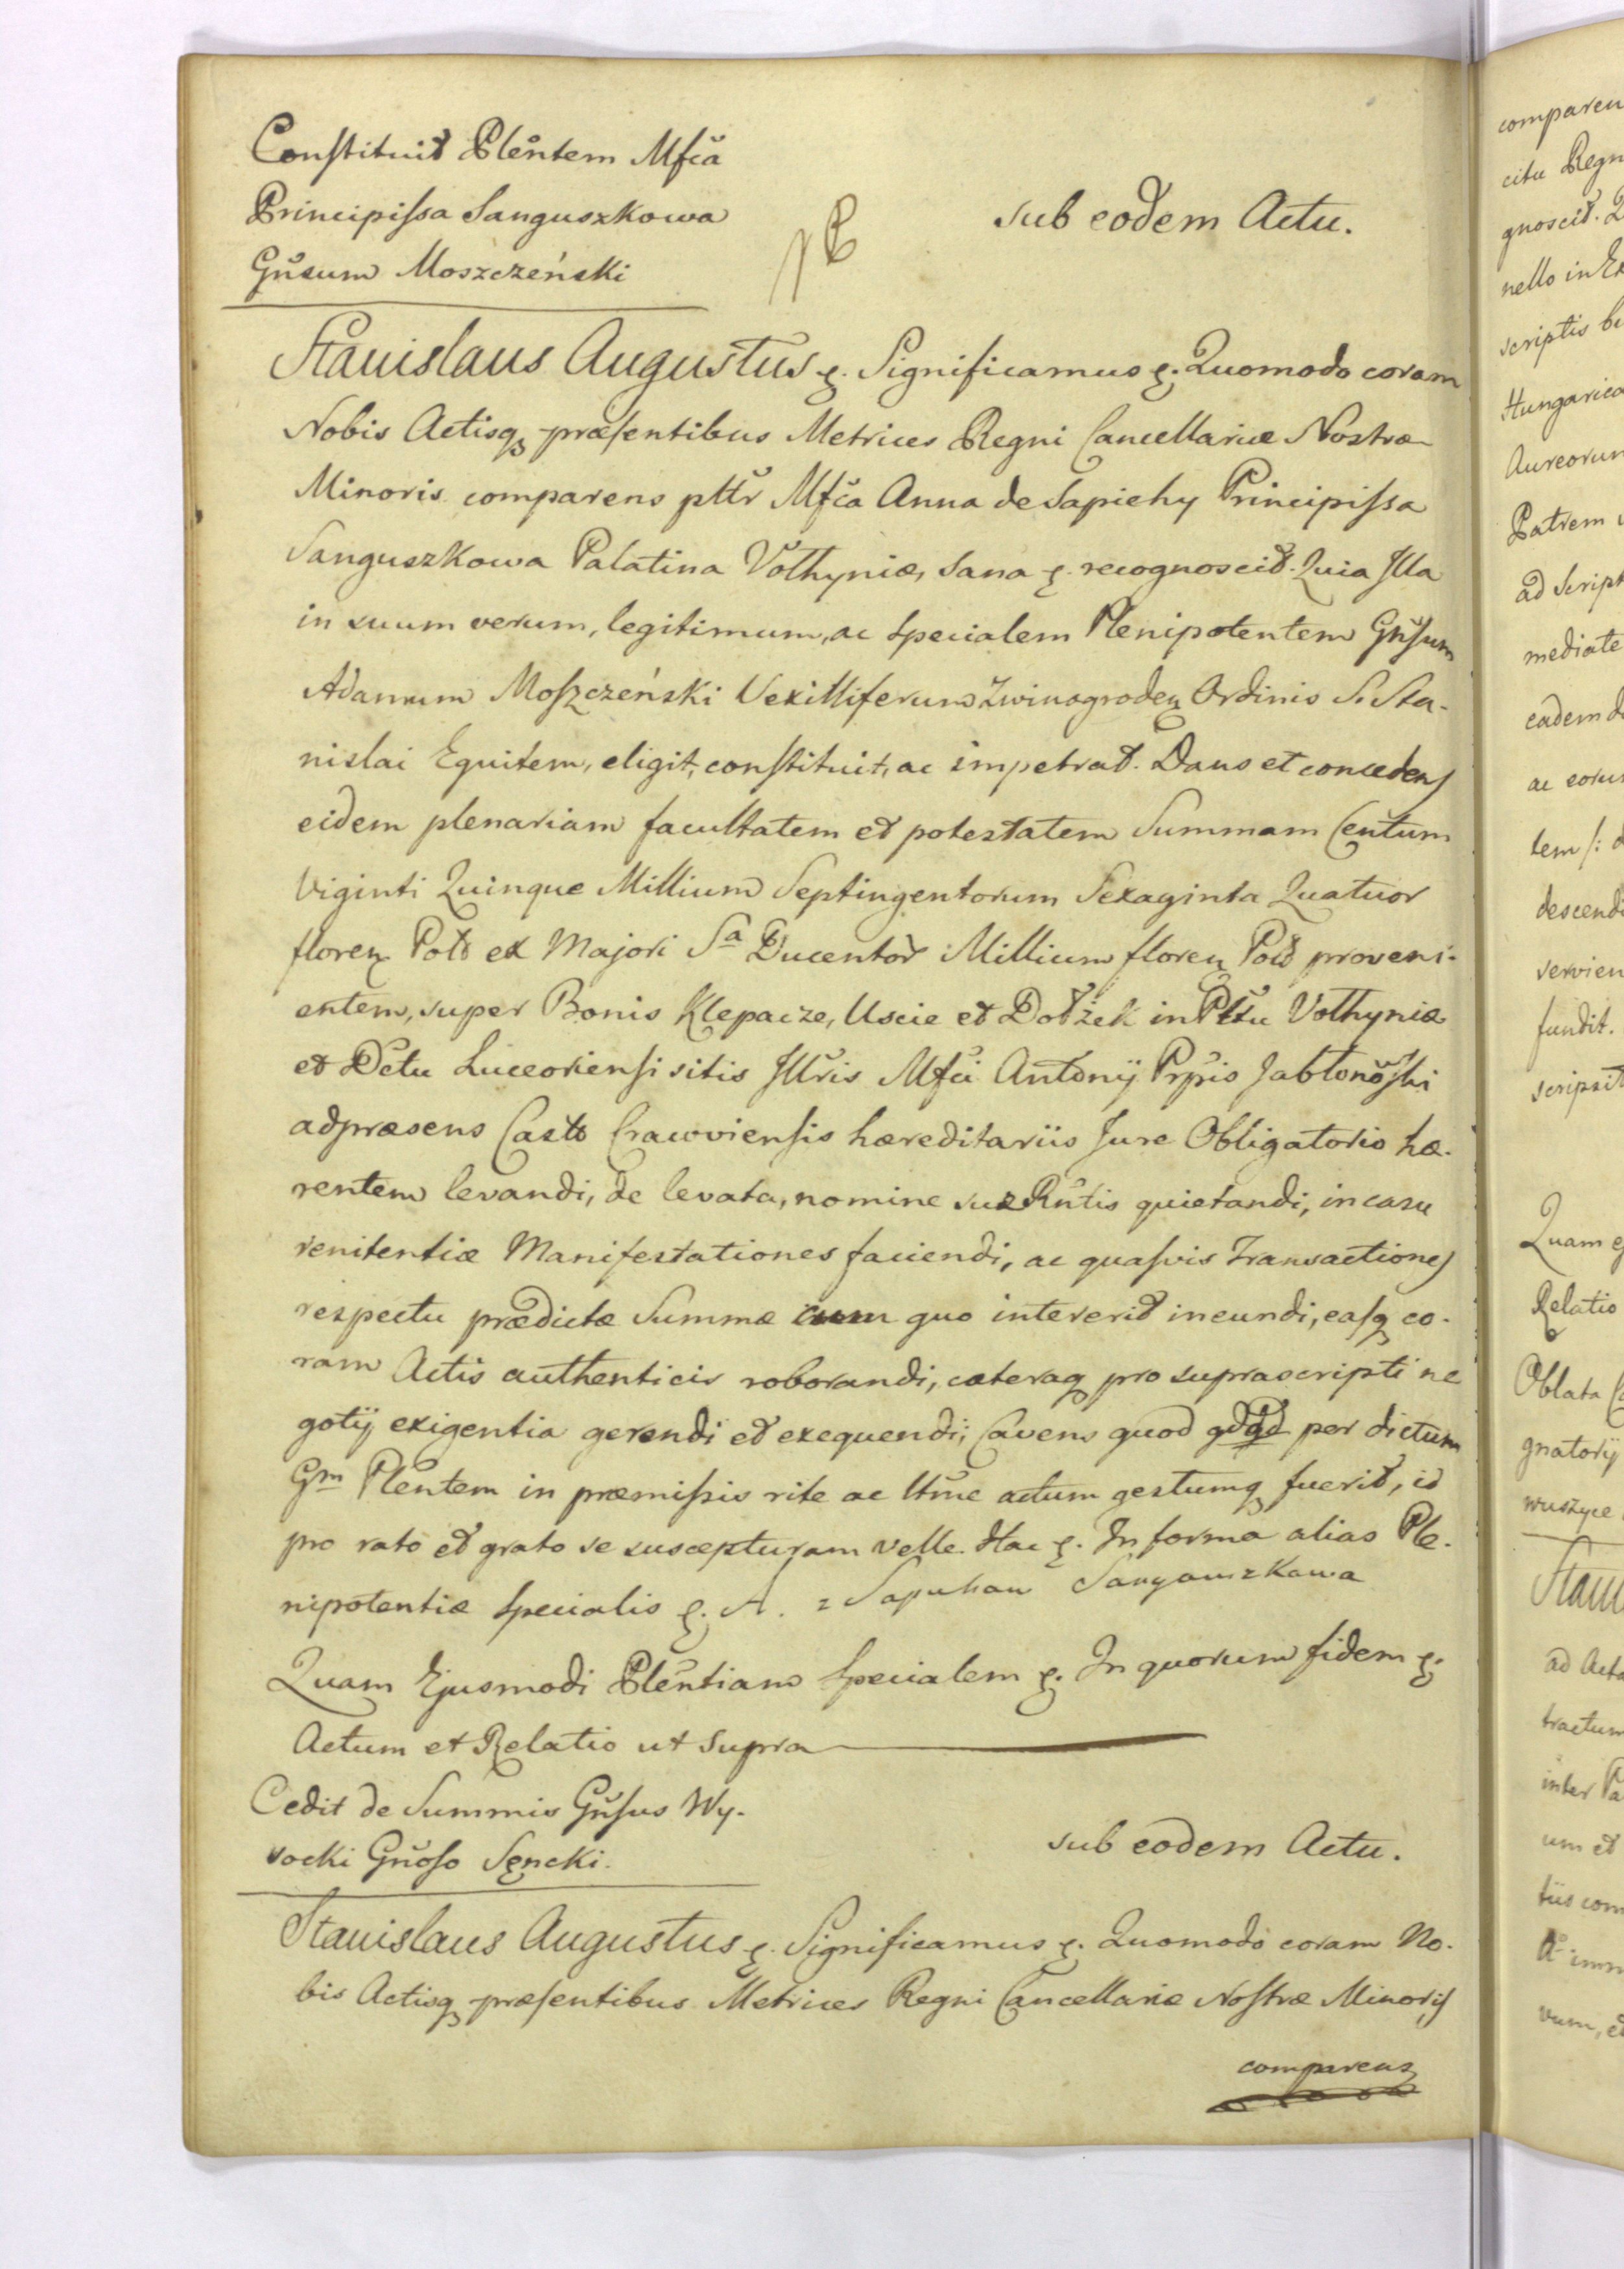 Constituit Plentem Mfca
Principissa Sanguszkowa
Gnsum Moszczeński
sub eodem Actu.
Stanislaus Augustus &. Significamus &. Quomodo coram
Nobis Actisq præsentibus Metrices Regni Cancellariæ Nostræ
Minoris comparens pltr Mfca Anna de Sapiehy Principissa
Sanguszkowa Palatina Volhyniæ, sana &. recognoscit. Quia Illa
in suum verum, legitimum, ac specialem Plenipotentem Gnsum
Adamum Moszczeński Vexilliferum Zwinogroden Ordinis S. Sta-
nislai Equitem, eligit, constituit, ac impetrat. Dans et concedens
eidem plenariam facultatem et potestatem Summam Centum
Viginti Quinque Millium Septingentorum Sexaginta Quatuor
floren Pol. ex Majori Sa Ducentor Millium floren Pol. proveni-
entem, super Bonis Klepacze, Uscie et Dołżek in Pltu Volhyniæ
et Dctu Luceoriensi sitis Illris Mfci Antonij Prpis Jabłonoski
ad præsens Castt Cracoviensis hæreditariis Jure Obligatorio hæ-
rentem levandi, de levata, nomine suæ Rntis quietandi, in casu
renitentiæ Manifestationes faciendi, ac quasvis Transactiones
respectu prædictæ Summæ cum quo intererit ineundi, easq co-
ram Actis authenticis roborandi, cæteraq pro suprascripti ne
gotij exigentia gerendi et exequendi; Cavens quod qdqd per dictum
Gm Plentem in præmissis rite ac ltme actum gestumq fuerit, id
pro rato et grato se suscepturam velle. Hac &. In forma alias Ple-
nipotentiæ specialis &. A. z Sapiehow Sanguszkowa
Quam Ejusmodi Plentiam Specialem &. In quorum fidem &.
Actum et Relatio ut supra
Cedit de Summis Gnsus Wy-
socki Gnoso Sęncki.
sub eodem Actu.
Stanislaus Augustus &. Significamus &. Quomodo coram No-
bis Actisq præsentibus Metrices Regni Cancellariæ Nostræ Minoris
comparens